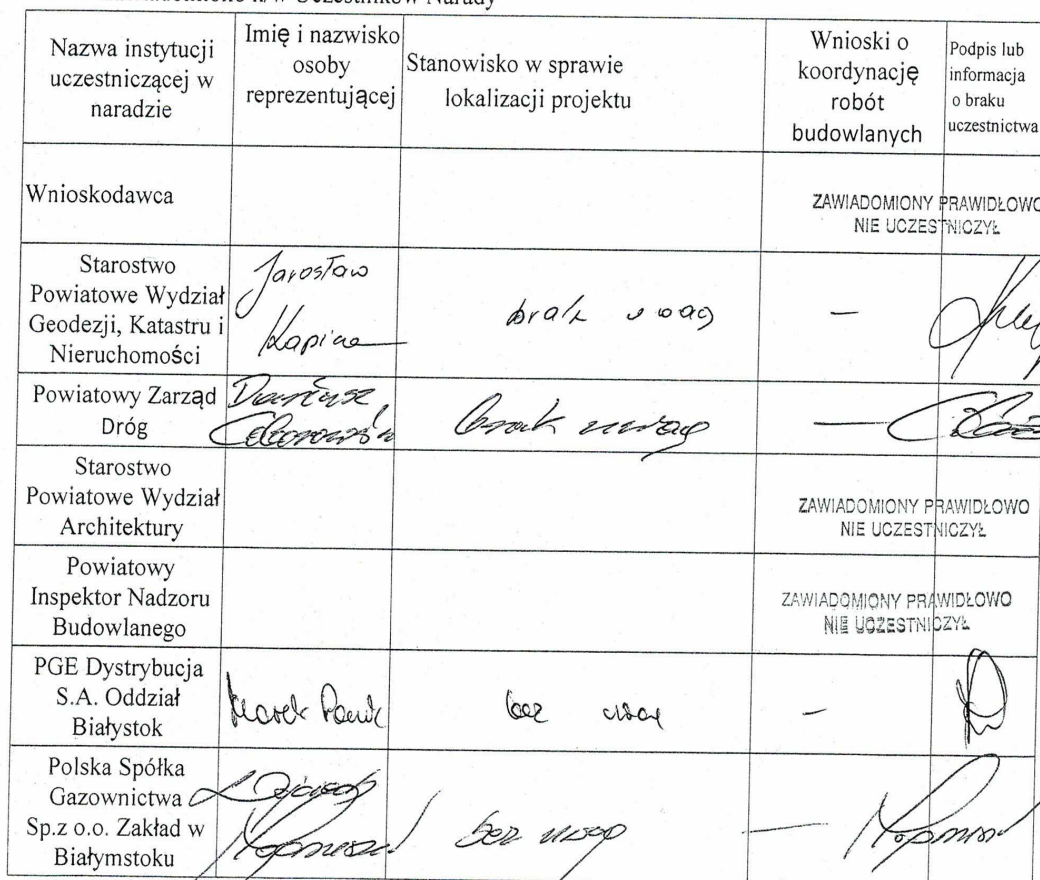 k/w Uczestników Narady
Nazwa instytucji
uczestniczącej w
naradzie
Imię i nazwisko
osoby
reprezentującej
Stanowisko w sprawie
lokalizacji projektu
Wnioski o
koordynację
robót
budowlanych
Podpis lub
informacja
o braku
uczestnictwa
Wnioskodawca
ZAWIADOMIONY PRAWIDŁOWO
NIE UCZESTNICZYŁ
Starostwo
Powiatowe Wydział
Geodezji, Katastru i
Nieruchomości
Jarosław
brak uwag
–
Powiatowy Zarząd
Dróg
Dariusz
brak uwag
—
Starostwo
Powiatowe Wydział
Architektury
ZAWIADOMIONY PRAWIDŁOWO
NIE UCZESTNICZYŁ
Powiatowy
Inspektor Nadzoru
Budowlanego
ZAWIADOMIONY PRAWIDŁOWO
NIE UCZESTNICZYŁ
PGE Dystrybucja
S.A. Oddział
Białystok
Marek
bez uwag
–
Polska Spółka
Gazownictwa
Sp.z o.o. Zakład w
Białymstoku
bez uwag
—